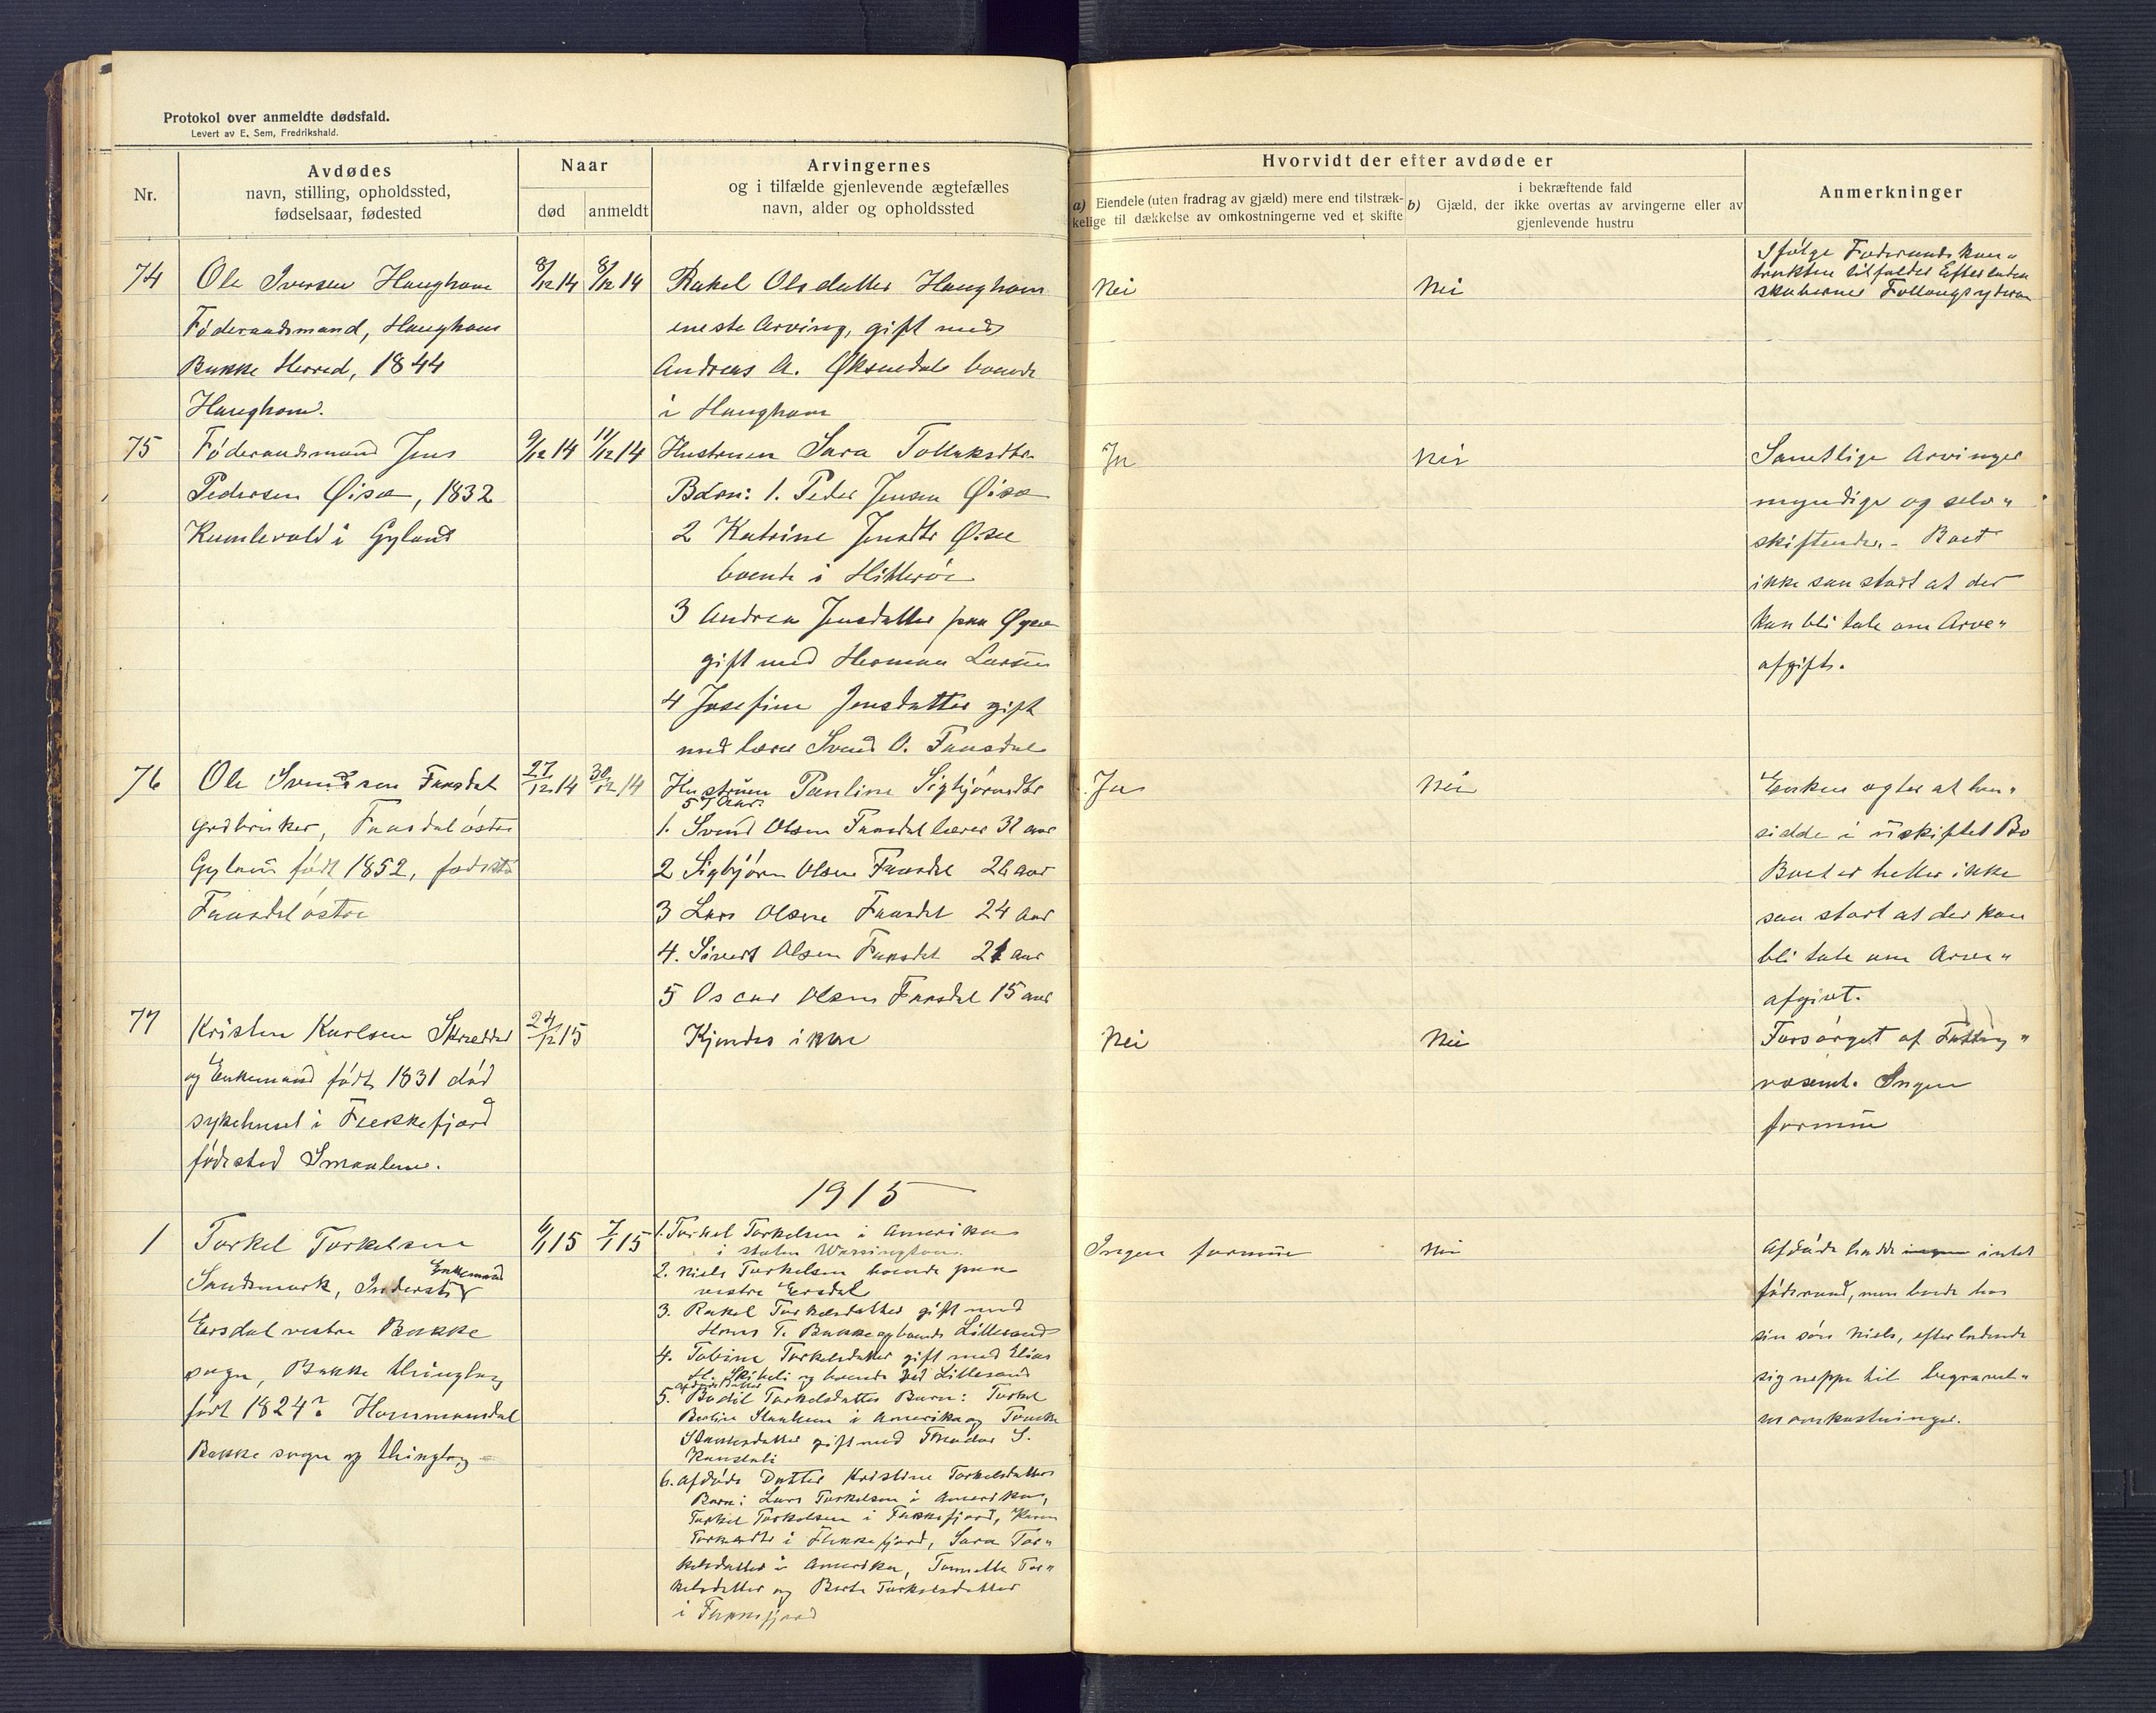 Protokol over anmeldte dødsfald.
Levert av E. Sem, Fredrikshald.
Nr.
Avdødes
navn, stilling, opholdssted,
fødselsaar, fødested
Naar
død
anmeldt
Arvingernes
og i tilfælde gjenlevende ægtefælles
navn, alder og opholdssted
Hvorvidt der efter avdøde er
a) Eiendele (uten fradrag av gjæld) mere end tilstræk-
kelige til dækkelse av omkostningerne ved et skifte
i bekræftende fald
b) Gjæld, der ikke overtas av arvingerne eller av
gjenlevende hustru
Anmerkninger
74
Ole Iversen Haugham
Føderaadsmand, Haugham
Bakke Herred, 1844
Haugham.
8/12 14
8/12 14
Rakel Olsdatter Haugham
eneste Arving, gift med
Andreas A. Øksendal boende
i Haugham
Nei
Nei
Ifølge Føderaadskon-
trakten tilfalder Efterladen
skaberne
75
Føderaadsmand Jens
Pedersen Øisæ, 1832
i Gyland
9/12 14
11/12 14
Hustruen Sara Tollaksdtr.
Børn: 1. Peder Jensen Øisæ
2 Katrine Jensdtr Øisæ
boende i Hitterø
3 Andrea Jensdatter paa Øysæ
gift med Herman Larsen
4 Josefine Jensdatter gift
med lærer Svend O. Fausdal
Ja
Nei
Samtlige Arvinger
myndige og selv-
skiftende. - Boet
ikke saa stort at der
kan bli tale om Arve-
afgift.
76
Ole Svendsen Fausdal
Grdbruker, Fausdal østre
Gyland født 1852, fødested
Fausdal østre
27/12 14
30/12 14
Hustruen Pauline Sigbjørnsdtr
57 Aar
1. Svend Olsen Fausdal lærer 32 aar
2 Sigbjørn Olsen Fausdal 26 aar
3 Lars Olsen Fausdal 24 Aar
4. Sivert Olsen Fausdal 21 Aar
5 Oscar Olsen Fausdal 15 aar
Ja
Nei
Enken agter at hen-
sidde i uskiftet Bo
Boet er heller ikke
saa stort at der kan
bli tale om Arve-
afgivt.
77
Kristen Karlsen Skrædder
og Enkemand født 1831 død
sykehuset i Flekkefjord
fødested Smaalene.
24/12 15
Kjendes ikke
Nei
Nei
Forsørget af Fattig-
væsent. Ingen
formue
1915
1
Torkel Torkelsen
Sandsmark, Inderst Enkemand
Eersdal vestre Bakke
sogn, Bakke thinglag
født 1824? Hommendal
Bakke sogn og thinglag
6/1 15
7/1 15
1. Torkel Torkelsen i Amerika
i staten Wassington.
2. Niels Torkelsen boende paa
vestre Eersdal
3. Rakel Torkelsdatter gift med
Hans T. Bakke og boende Lillesand
4. Tobine Torkelsdatter gift med Elias
og boende ved Lillesand
5. afdøde datter Bodil Torkelsdatter Barn: Torkel
i Amerika og
gift med Theodor S.
6. Afdøde Datter Kristine Torkelsdatters
Barn: Lars Torkelsen i Amerika,
Torkel Torkelsen i Flekkefjord, Karen
i Flekkefjord, Sara Tor-
kelsdatter i Amerika, Tor-
kelsdatter og Berte Torkelsdatter
i Flekkefjord
Ingen formue
Nei
Afdøde hadde intet
føderaad, men boede hos
sin søn Niels, efterladende
sig neppe til begravel-
sesomkostninger.